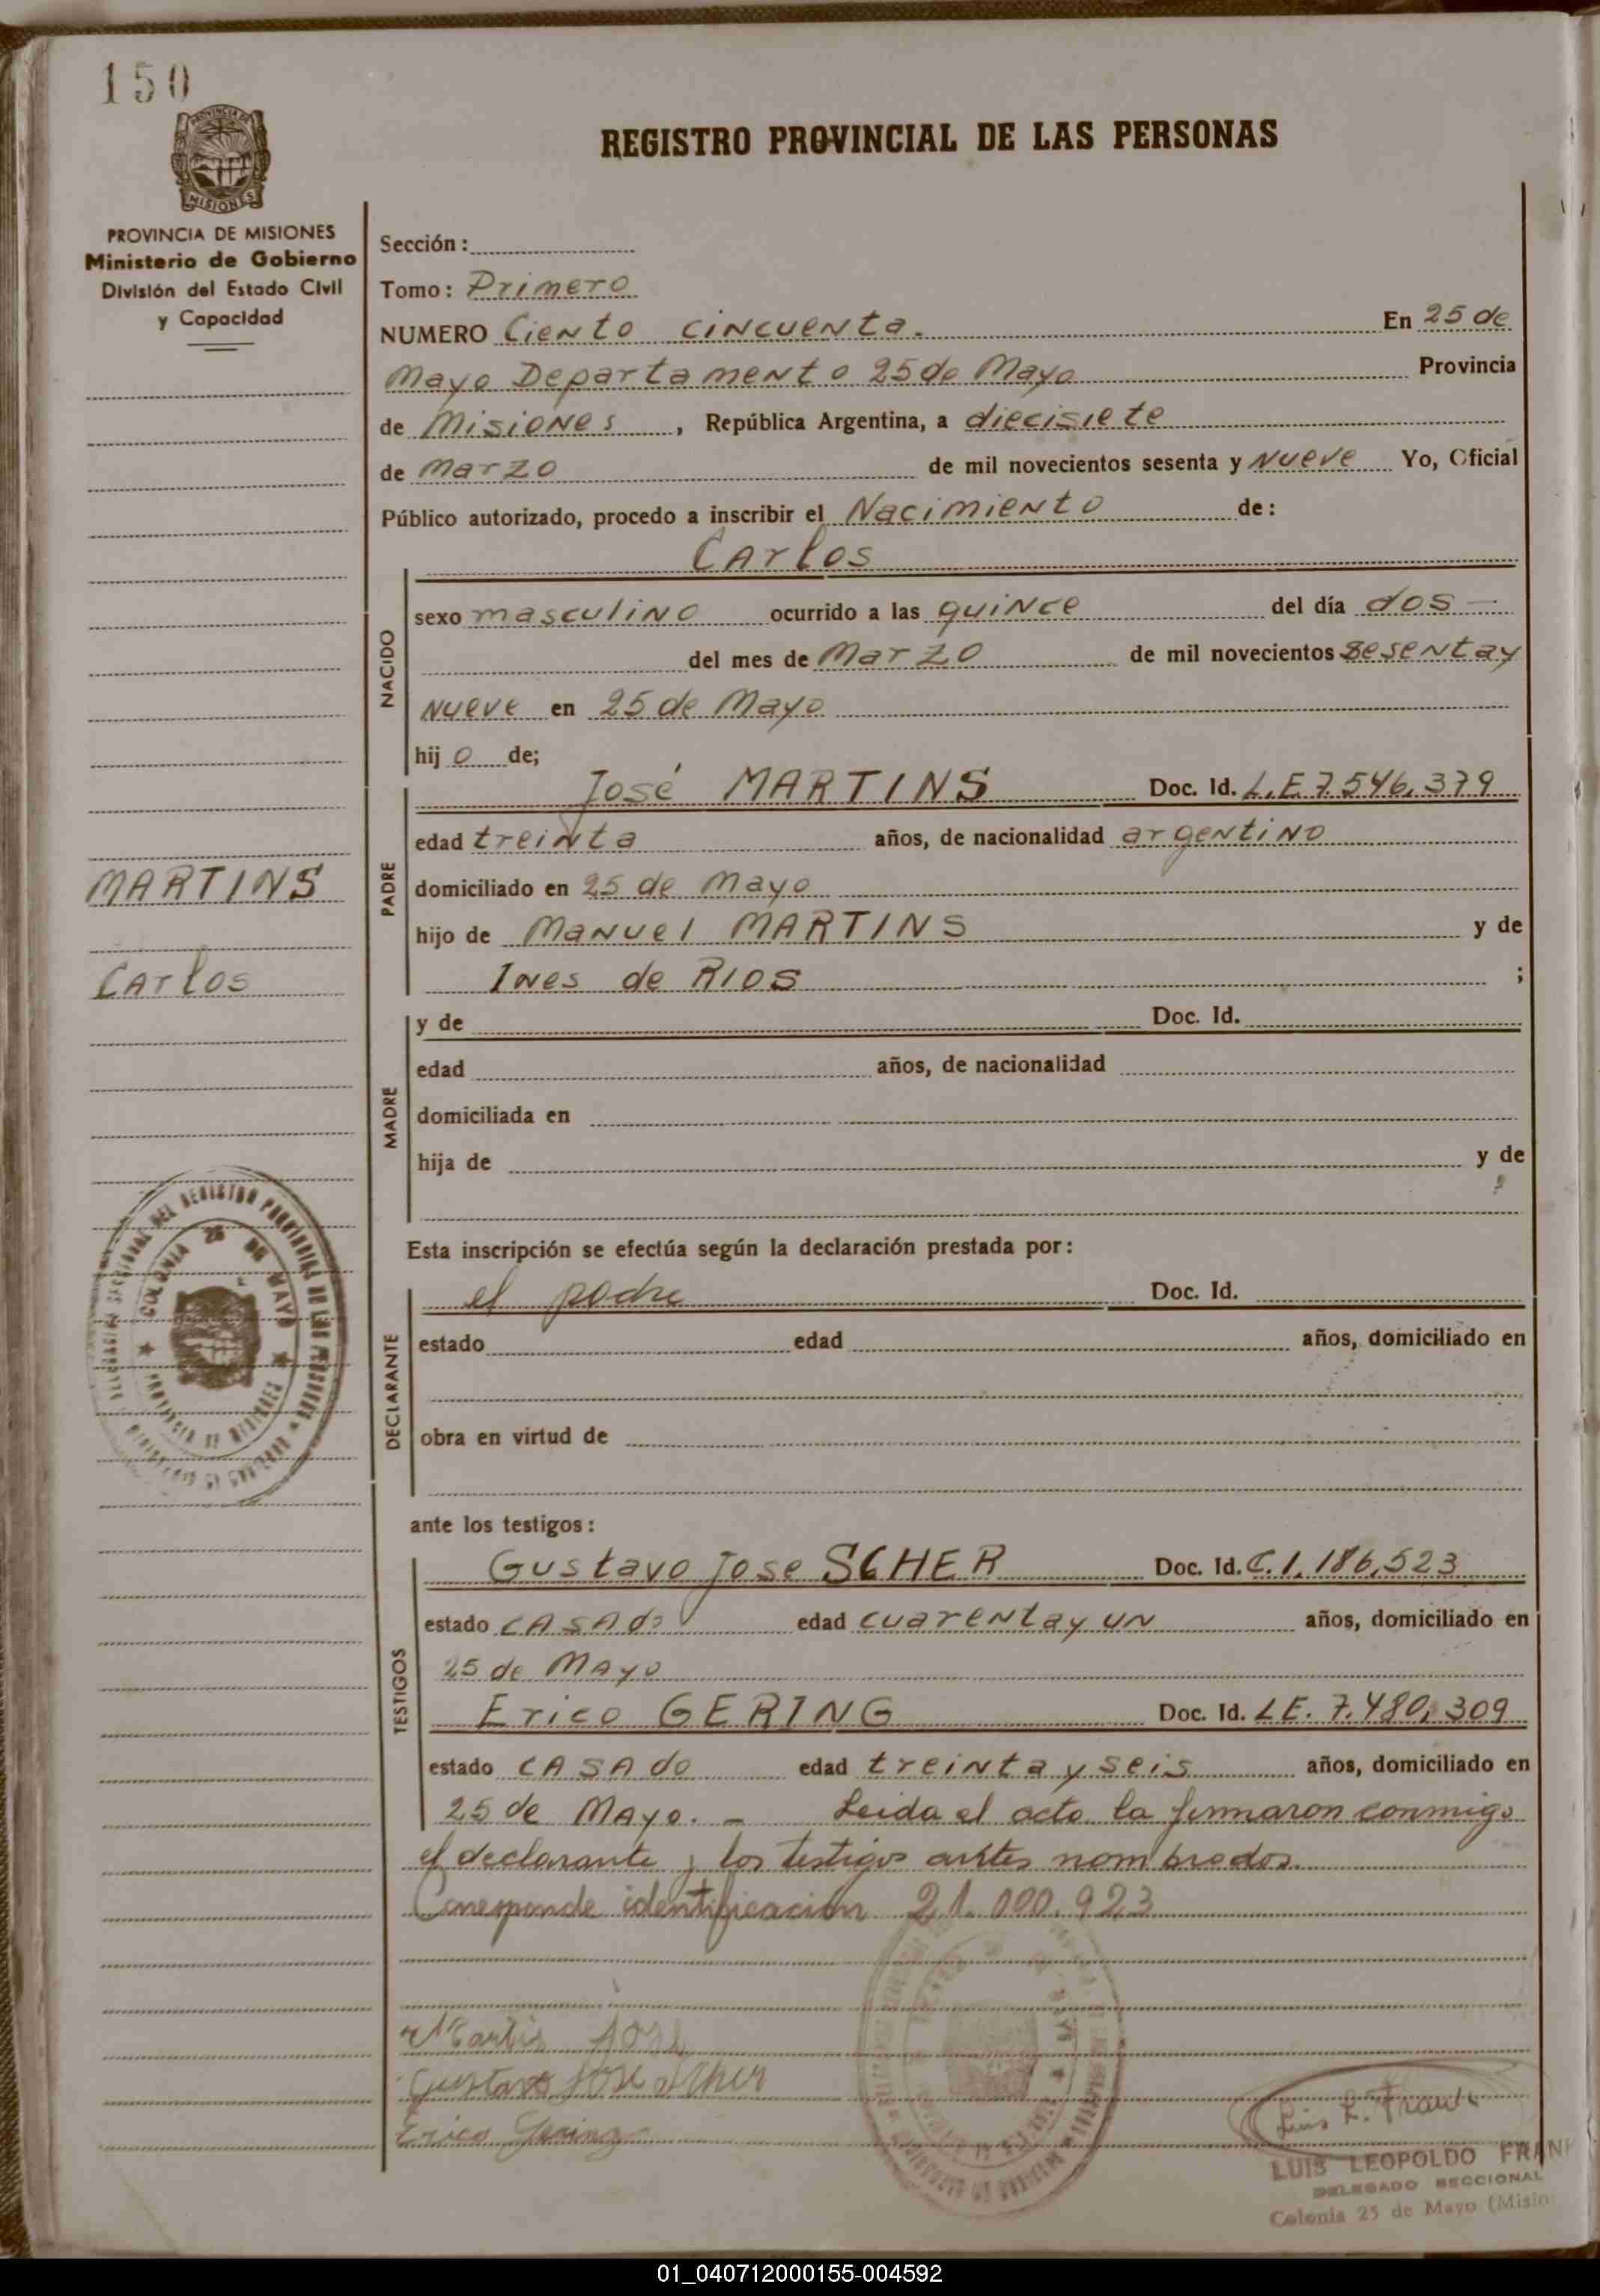 150
PROVINCIA DE
MISIONES
PROVINCIA DE MISIONES
Ministerio de Gobierno
División del Estado Civil
y Capacidad
REGISTRO PROVINCIAL DE LAS PERSONAS
Sección:
Tomo: Primero
NUMERO Ciento cincuenta. En 25 de
Mayo Departamento 25 de Mayo Provincia
de Misiones, República Argentina, a diecisiete
de Marzo de mil novecientos sesenta y nueve Yo, Oficial
Público autorizado, procedo a inscribir el Nacimiento de:
Carlos
NACIDO
sexo masculino ocurrido a las quince del día dos —
del mes de Marzo de mil novecientos sesenta y
nueve en 25 de Mayo
hij o de;
PADRE
José MARTINS Doc. Id. L.E 7.546.379
edad treinta años, de nacionalidad argentino
domiciliado en 25 de Mayo
hijo de Manuel MARTINS y de
Ines de RIOS ;
MARTINS
Carlos
MADRE
y de Doc. Id.
edad años, de nacionalidad
domiciliada en
hija de y de
;
Esta inscripción se efectúa según la declaración prestada por:
DECLARANTE
el padre Doc. Id.
estado edad años, domiciliado en
obra en virtud de
DEL REGISTRO PROVINCIAL DE LAS PERSONAS
COLONIA 25 DE MAYO
PROVINCIA DE MISIONES
ante los testigos:
TESTIGOS
Gustavo Jose SCHER Doc. Id. C.I. 186,523
estado CASAdo edad cuarenta y un años, domiciliado en
25 de MAyo
Erico GERING Doc. Id. LE. 7.480,309
estado CASAdo edad treinta y seis años, domiciliado en
25 de MAyo. - Leida el acta la firmaron conmigo
el declarante y los testigos antes nombrados.
Corresponde identificacion 21.000.923
Martis José
Gustavo José Scher
Erico Gering
Luis L. Frank
LUIS LEOPOLDO FRANK
DELEGADO SECCIONAL
Colonia 25 de Mayo (Misio
01_040712000155-004592